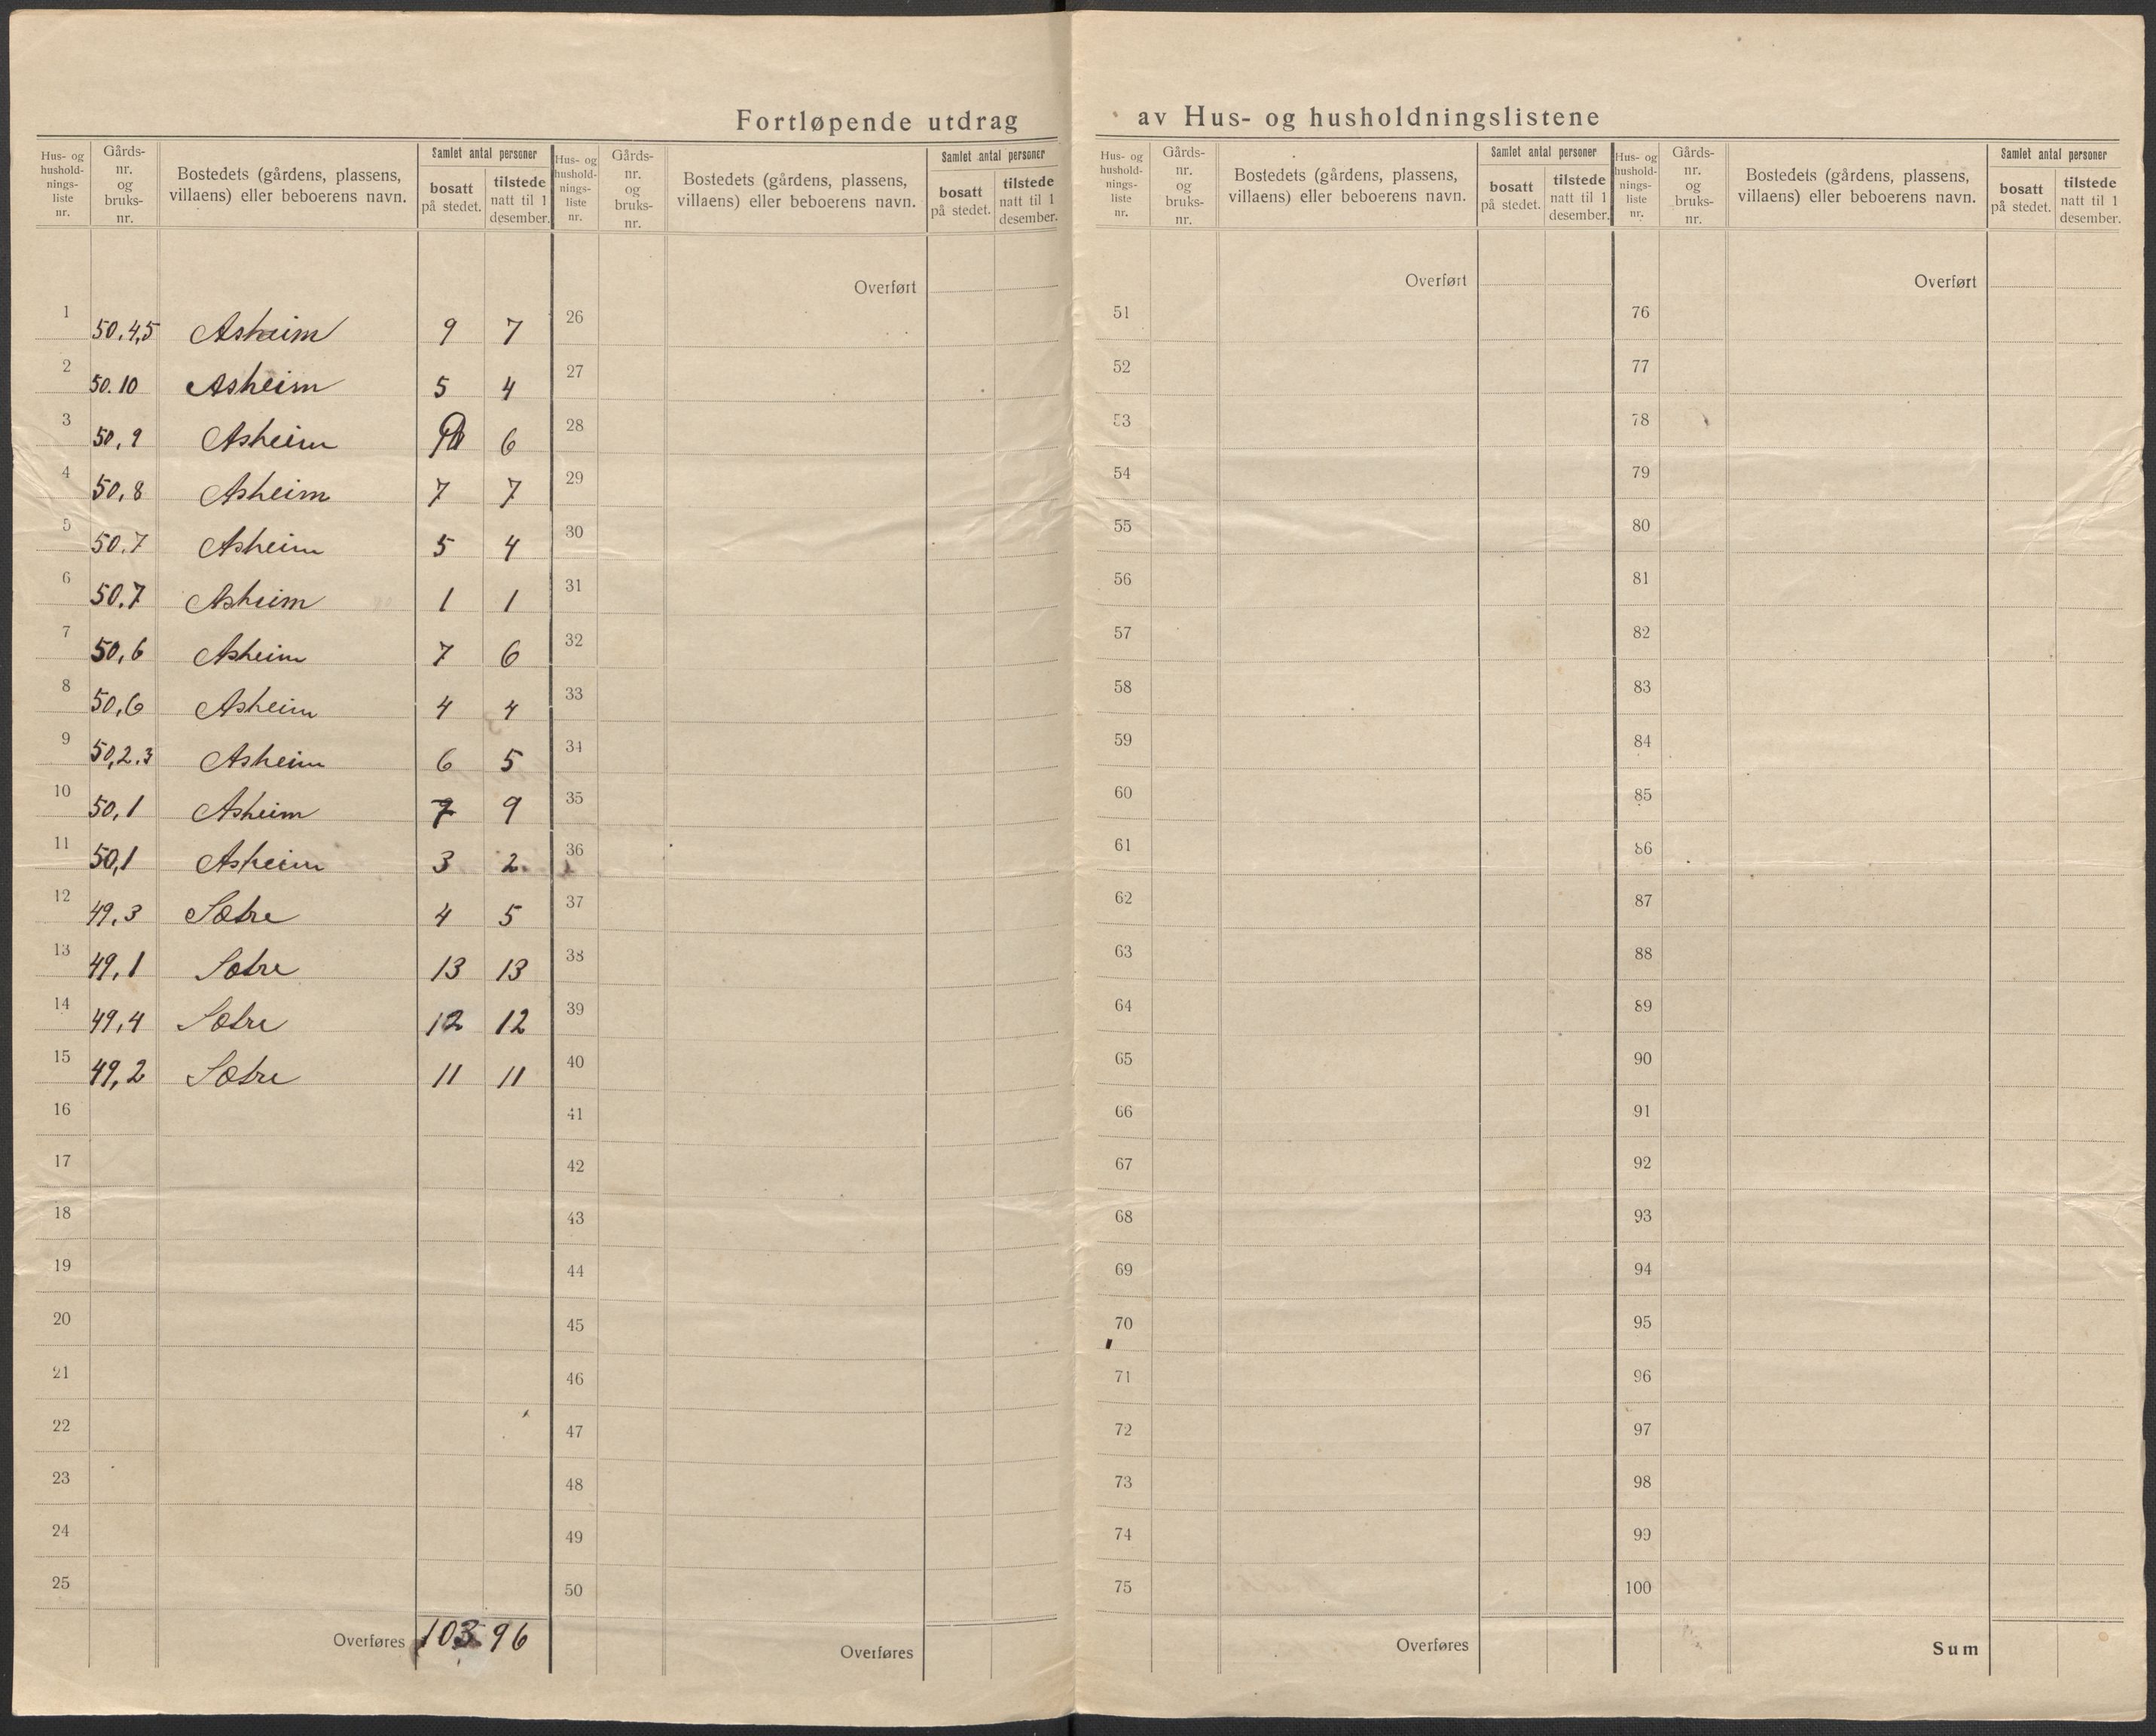 Fortløpende utdrag av Hus- og husholdningslistene
Hus- og hushold-nings-liste nr. Gårds-nr. og bruks-nr. Bostedets (gårdens, plassens, villaens) eller beboerens navn. Samlet antal personer bosatt på stedet. tilstede natt til 1 desember.
1 50.4,5 Asheim 9 7
2 50.10 Asheim 5 4
3 50,9 Asheim 6
4 50,8 Asheim 7 7
5 50.7 Asheim 5 4
6 50.7 Asheim 1 1
7 50,6 Asheim 7 6
8 50,6 Asheim 4 4
9 50,2.3 Asheim 6 5
10 50,1 Asheim 7 9
11 50,1 Asheim 3 2
12 49,3 Sætre 4 5
13 49,1 Sætre 13 13
14 49,4 Sætre 12 12
15 49,2 Sætre 11 11
16
17
18
19
20
21
22
23
24
25
Overføres 103 96
Hus- og hushold-nings-liste nr. Gårds-nr. og bruks-nr. Bostedets (gårdens, plassens, villaens) eller beboerens navn. Samlet antal personer bosatt på stedet. tilstede natt til 1 desember.
Overført
26
27
28
29
30
31
32
33
34
35
36
37
38
39
40
41
42
43
44
45
46
47
48
49
50
Overføres
Hus- og hushold-nings-liste nr. Gårds-nr. og bruks-nr. Bostedets (gårdens, plassens, villaens) eller beboerens navn. Samlet antal personer bosatt på stedet. tilstede natt til 1 desember.
Overført
51
52
53
54
55
56
57
58
59
60
61
62
63
64
65
66
67
68
69
70
71
72
73
74
75
Overføres
Hus- og hushold-nings-liste nr. Gårds-nr. og bruks-nr. Bostedets (gårdens, plassens, villaens) eller beboerens navn. Samlet antal personer bosatt på stedet. tilstede natt til 1 desember.
Overført
76
77
78
79
80
81
82
83
84
85
86
87
88
89
90
91
92
93
94
95
96
97
98
99
100
Sum